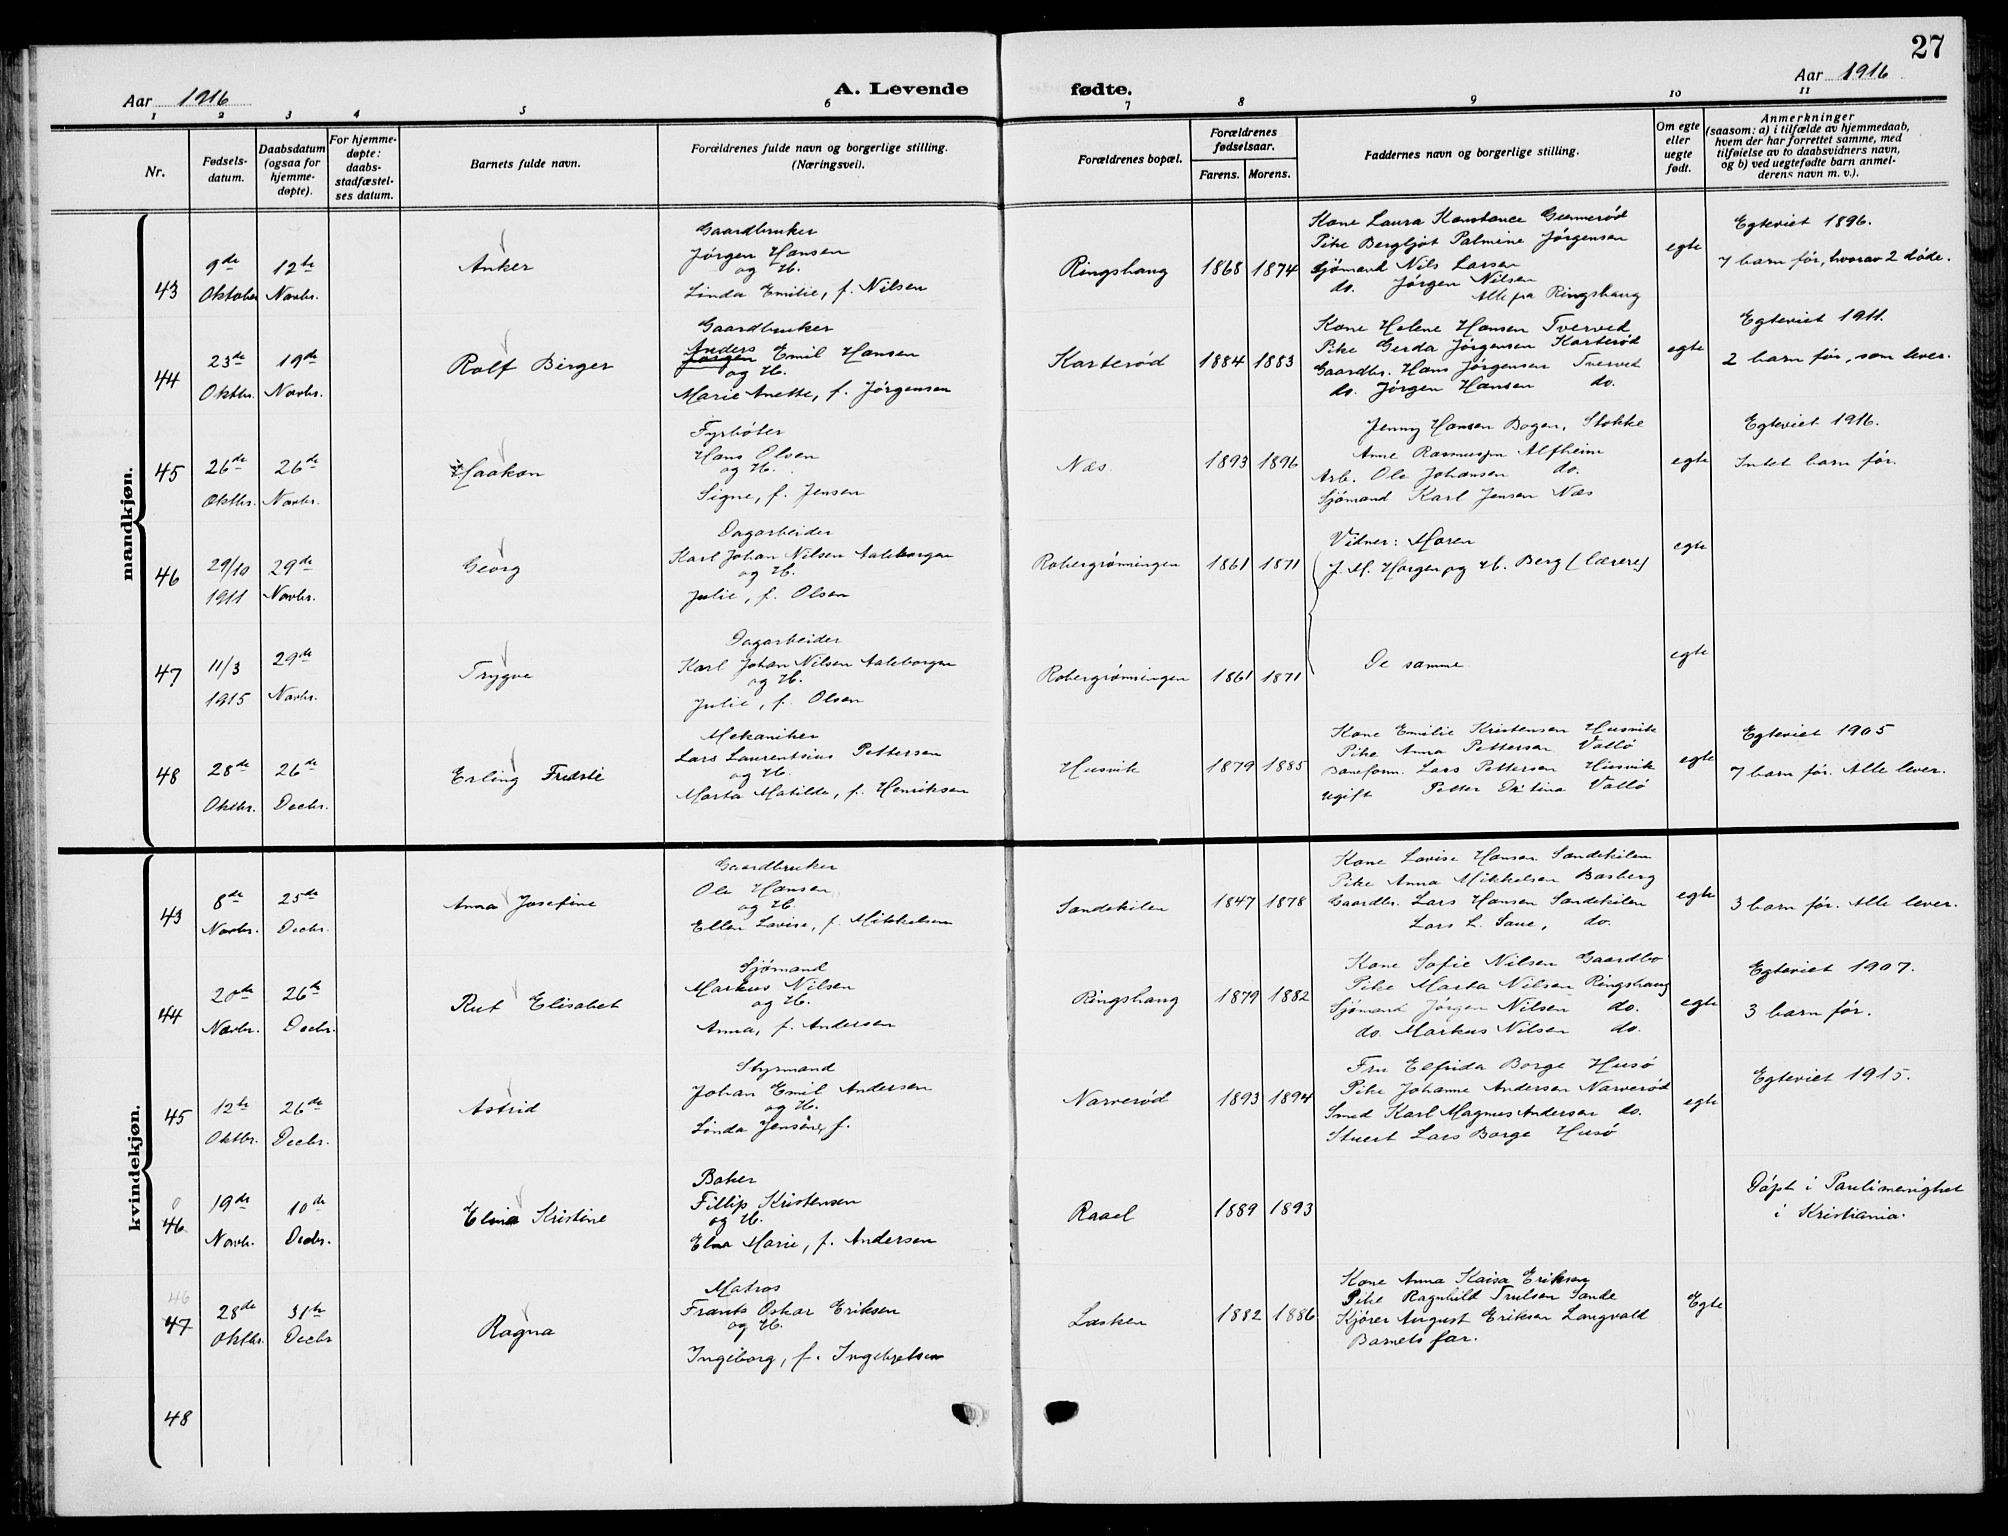 27
Aar 1916
A. Levende
fødte.
Aar 1916
1 2 3 4 5 6 7 8 9 10 11
Nr.
Fødsels-
datum.
Daabsdatum
(ogsaa for
hjemme-
døpte).
For hjemme-
døpte:
daabs-
stadfæstel-
ses datum.
Barnets fulde navn.
Forældrenes fulde navn og borgerlige stilling.
(Næringsvei).
Forældrenes bopæl.
Forældrenes
fødselsaar.
Farens. Morens.
Faddernes navn og borgerlige stilling.
Om egte
eller
uegte
født.
Anmerkninger
(saasom: a) i tilfælde av hjemmedaab,
hvem der har forrettet samme, med
tilføielse av to daabsvidners navn,
og b) ved uegtefødte barn anmel-
derens navn m. v.).
mandkjøn.
43
9de
Oktober
12te
Novbr.
Anker
Gaardbruker
Jørgen Hansen
og H.
Linda Emilie, f. Nilsen
Ringshaug
1868 1874
Kone Laura Konstance Gunnerød
Pike Bergljot Palmine Jørgensen
Sjømand Nils Larsen
do. Jørgen Nilsen
Alle fra Ringshaug
egte
Egteviet 1896.
7 barn før, hvorav 2 døde.
44
23de
Oktbr.
19de
Novbr.
Rolf Birger
Gaardbruker
Anders
Jørgen Emil Hansen
og H.
Marie Anette, f. Jørgensen
Karterød
1884 1883
Kone Helene Hansen Tverved
Pike Gerda Jørgensen Karterød
Gaardbr. Hans Jørgensen Tverved
do. Jørgen Hansen do.
egte
Egteviet 1911.
2 barn før, som lever.
45
26de
Oktbr.
26de
Novbr.
Haakon
Fyrbøter
Hans Olsen
og H.
Signe, f. Jensen
Næs.
1893 1896
Jenny Hansen Bogen, Stokke
Anne Rasmussen Alfheim
Arb. Ole Johansen do.
Sjømand Karl Jensen Næs
egte
Egteviet 1916.
Intet barn før.
46
29/10
1911
29de
Novbr.
Georg
Dagarbeider
Karl Johan Nilsen Aaleborgen
og H.
Julie, f. Olsen
Robergrønningen
1861 1871
Vidner: Moren
J. M. Horgen og H. Berg (lærere)
egte
47
11/3
1915
29de
Novbr.
Trygve
Dagarbeider
Karl Johan Nilsen Aaleborgen
og H.
Julie, f. Olsen
Robergrønningen
1861 1871
De samme
egte
48
28de
Oktbr.
26de
Decbr.
Erling
Mekaniker
Lars Laurentsius Pettersen
og H.
Marta Matilde, f. Henriksen
Husvik
1879 1885
Kone Emilie Kristensen Husvik
Pike Anna Pettersen Vallø
Baneform. Lars Pettersen Husvik
Ugift Petter Vallø
egte
Egteviet 1905
7 barn før. Alle lever.
kvindekjøn.
43
8de
Novbr.
25de
Decbr.
Anna Josefine
Gaardbruker
Ole Hansen
og H.
Ellen Lovise, f. Mikkelsen
Sandekilen
1847 1878
Kone Lovise Hansen Sandekilen
Pike Anna Mikkelsen Basberg
Gaardbr. Lars Hansen Sandekilen
Lars L. Saue, do.
egte
3 barn før. Alle lever.
44
20de
Novbr.
26de
Decbr.
Rut Elisabet
Sjømand
Markus Nilsen
og H.
Anna, f. Andersen
Ringshaug
1879 1882
Kone Sofie Nilsen Gaardbo
Pike Marta Nilsen Ringshaug
Sjømand Jørgen Nilsen do.
do. Markus Nilsen do.
egte
Egteviet 1907.
3 barn før.
45
12te
Oktbr.
26de
Decbr.
Astrid
Styrmand
Johan Emil Andersen
og H.
Linda Jensen, f.
Narverød
1893 1894
Fru Elfrida Borge Husø
Pike Johanne Andersen Narverød
Smed Karl Magnus Andersen do.
Stuert Lars Borge Husø
egte
Egteviet 1915.
0
46
19de
Novbr.
10de
Decbr.
Elna Kristine
Baker
Fillip Kristensen
og H.
Elna Marie, f. Andersen
Raael
1889 1893
Døpt i Paulimenighet
i Kristiania.
46
47
28de
Oktbr.
31te
Decbr
Ragna
Matros
Frants Oskar Eriksen
og H.
Ingeborg, f. Ingebretsen
Lasken
1882 1886
Kone Anna Kaisa Eriksen
Pike Ragnhild Trulsen Sande
Kjører August Eriksen Langvald
Barnets far.
Egte
48